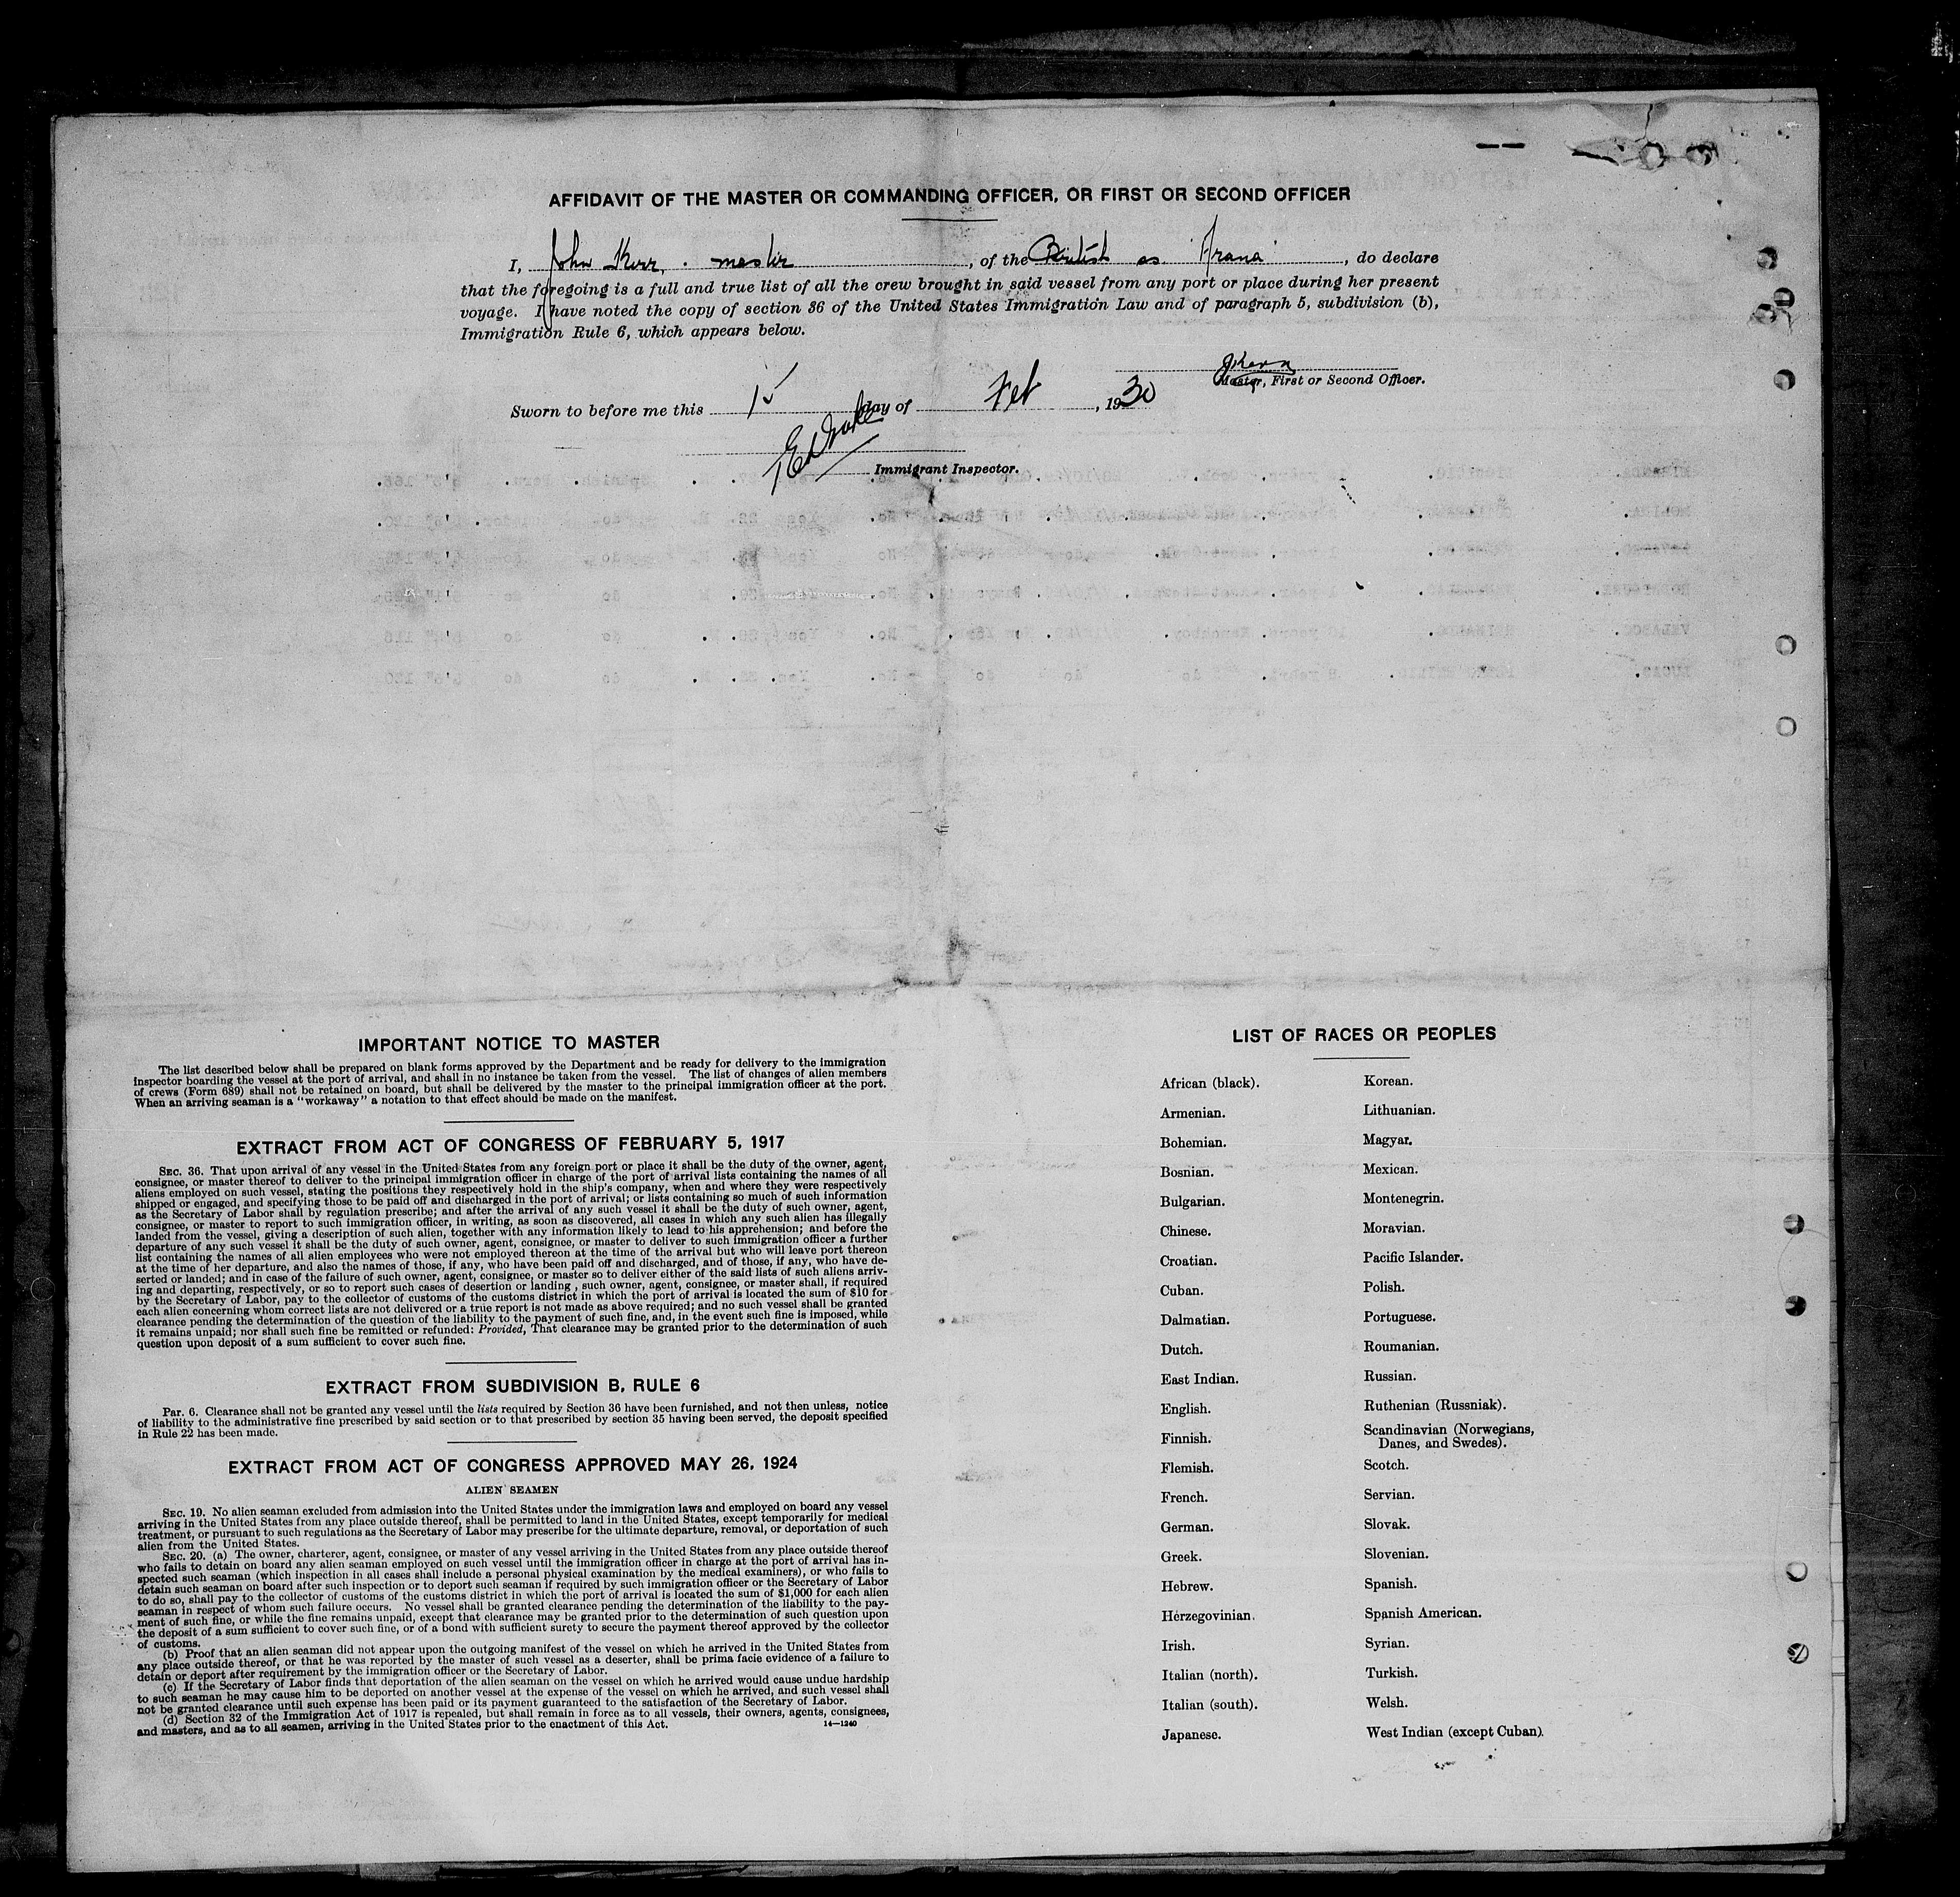 AFFIDAVIT OF THE MASTER OR COMMANDING OFFICER, OR FIRST OR SECOND OFFICER
I, John Kerr, master, of the British ss 'Arana', do declare
that the foregoing is a full and true list of all the crew brought in said vessel from any port or place during her present
voyage. I have noted the copy of section 36 of the United States Immigration Law and of paragraph 5, subdivision (b),
Immigration Rule 6, which appears below.
JKerr
Master, First or Second Officer.
Sworn to before me this 15 day of Feb, 1930
Immigrant Inspector.
IMPORTANT NOTICE TO MASTER
The list described below shall be prepared on blank forms approved by the Department and be ready for delivery to the immigration
inspector boarding the vessel at the port of arrival, and shall in no instance be taken from the vessel. The list of changes of alien members
of crews (Form 689) shall not be retained on board, but shall be delivered by the master to the principal immigration officer at the port.
When an arriving seaman is a "workaway" a notation to that effect should be made on the manifest.
EXTRACT FROM ACT OF CONGRESS OF FEBRUARY 5, 1917
SEC. 36. That upon arrival of any vessel in the United States from any foreign port or place it shall be the duty of the owner, agent,
consignee, or master thereof to deliver to the principal immigration officer in charge of the port of arrival lists containing the names of all
aliens employed on such vessel, stating the positions they respectively hold in the ship's company, when and where they were respectively
shipped or engaged, and specifying those to be paid off and discharged in the port of arrival; or lists containing so much of such information
as the Secretary of Labor shall by regulation prescribe; and after the arrival of any such vessel it shall be the duty of such owner, agent,
consignee, or master to report to such immigration officer, in writing, as soon as discovered, all cases in which any such alien has illegally
landed from the vessel, giving a description of such alien, together with any information likely to lead to his apprehension; and before the
departure of any such vessel it shall be the duty of such owner, agent, consignee, or master to deliver to such immigration officer a further
list containing the names of all alien employees who were not employed thereon at the time of the arrival but who will leave port thereon
at the time of her departure, and also the names of those, if any, who have been paid off and discharged, and of those, if any, who have de-
serted or landed; and in case of the failure of such owner, agent, consignee, or master so to deliver either of the said lists of such aliens arriv-
ing and departing, respectively, or so to report such cases of desertion or landing , such owner, agent, consignee, or master shall, if required
by the Secretary of Labor, pay to the collector of customs of the customs district in which the port of arrival is located the sum of $10 for
each alien concerning whom correct lists are not delivered or a true report is not made as above required; and no such vessel shall be granted
clearance pending the determination of the question of the liability to the payment of such fine, and, in the event such fine is imposed, while
it remains unpaid; nor shall such fine be remitted or refunded: Provided, That clearance may be granted prior to the determination of such
question upon deposit of a sum sufficient to cover such fine.
EXTRACT FROM SUBDIVISION B, RULE 6
Par. 6. Clearance shall not be granted any vessel until the lists required by Section 36 have been furnished, and not then unless, notice
of liability to the administrative fine prescribed by said section or to that prescribed by section 35 having been served, the deposit specified
in Rule 22 has been made.
EXTRACT FROM ACT OF CONGRESS APPROVED MAY 26, 1924
ALIEN SEAMEN
SEC. 19. No alien seaman excluded from admission into the United States under the immigration laws and employed on board any vessel
arriving in the United States from any place outside thereof, shall be permitted to land in the United States, except temporarily for medical
treatment, or pursuant to such regulations as the Secretary of Labor may prescribe for the ultimate departure, removal, or deportation of such
alien from the United States.
SEC. 20. (a) The owner, charterer, agent, consignee, or master of any vessel arriving in the United States from any place outside thereof
who fails to detain on board any alien seaman employed on such vessel until the immigration officer in charge at the port of arrival has in-
spected such seaman (which inspection in all cases shall include a personal physical examination by the medical examiners), or who fails to
detain such seaman on board after such inspection or to deport such seaman if required by such immigration officer or the Secretary of Labor
to do so, shall pay to the collector of customs of the customs district in which the port of arrival is located the sum of $1,000 for each alien
seaman in respect of whom such failure occurs. No vessel shall be granted clearance pending the determination of the liability to the pay-
ment of such fine, or while the fine remains unpaid, except that clearance may be granted prior to the determination of such question upon
the deposit of a sum sufficient to cover such fine, or of a bond with sufficient surety to secure the payment thereof approved by the collector
of customs.
(b) Proof that an alien seaman did not appear upon the outgoing manifest of the vessel on which he arrived in the United States from
any place outside thereof, or that he was reported by the master of such vessel as a deserter, shall be prima facie evidence of a failure to
detain or deport after requirement by the immigration officer or the Secretary of Labor.
(c) If the Secretary of Labor finds that deportation of the alien seaman on the vessel on which he arrived would cause undue hardship
to such seaman he may cause him to be deported on another vessel at the expense of the vessel on which he arrived, and such vessel shall
not be granted clearance until such expense has been paid or its payment guaranteed to the satisfaction of the Secretary of Labor.
(d) Section 32 of the Immigration Act of 1917 is repealed, but shall remain in force as to all vessels, their owners, agents, consignees,
and masters, and as to all seamen, arriving in the United States prior to the enactment of this Act.
14—1240
LIST OF RACES OR PEOPLES
African (black).
Armenian.
Bohemian.
Bosnian.
Bulgarian.
Chinese.
Croatian.
Cuban.
Dalmatian.
Dutch.
East Indian.
English.
Finnish.
Flemish.
French.
German.
Greek.
Hebrew.
Herzegovinian.
Irish.
Italian (north).
Italian (south).
Japanese.
Korean.
Lithuanian.
Magyar.
Mexican.
Montenegrin.
Moravian.
Pacific Islander.
Polish.
Portuguese.
Roumanian.
Russian.
Ruthenian (Russniak).
Scandinavian (Norwegians,
Danes, and Swedes).
Scotch.
Servian.
Slovak.
Slovenian.
Spanish.
Spanish American.
Syrian.
Turkish.
Welsh.
West Indian (except Cuban).